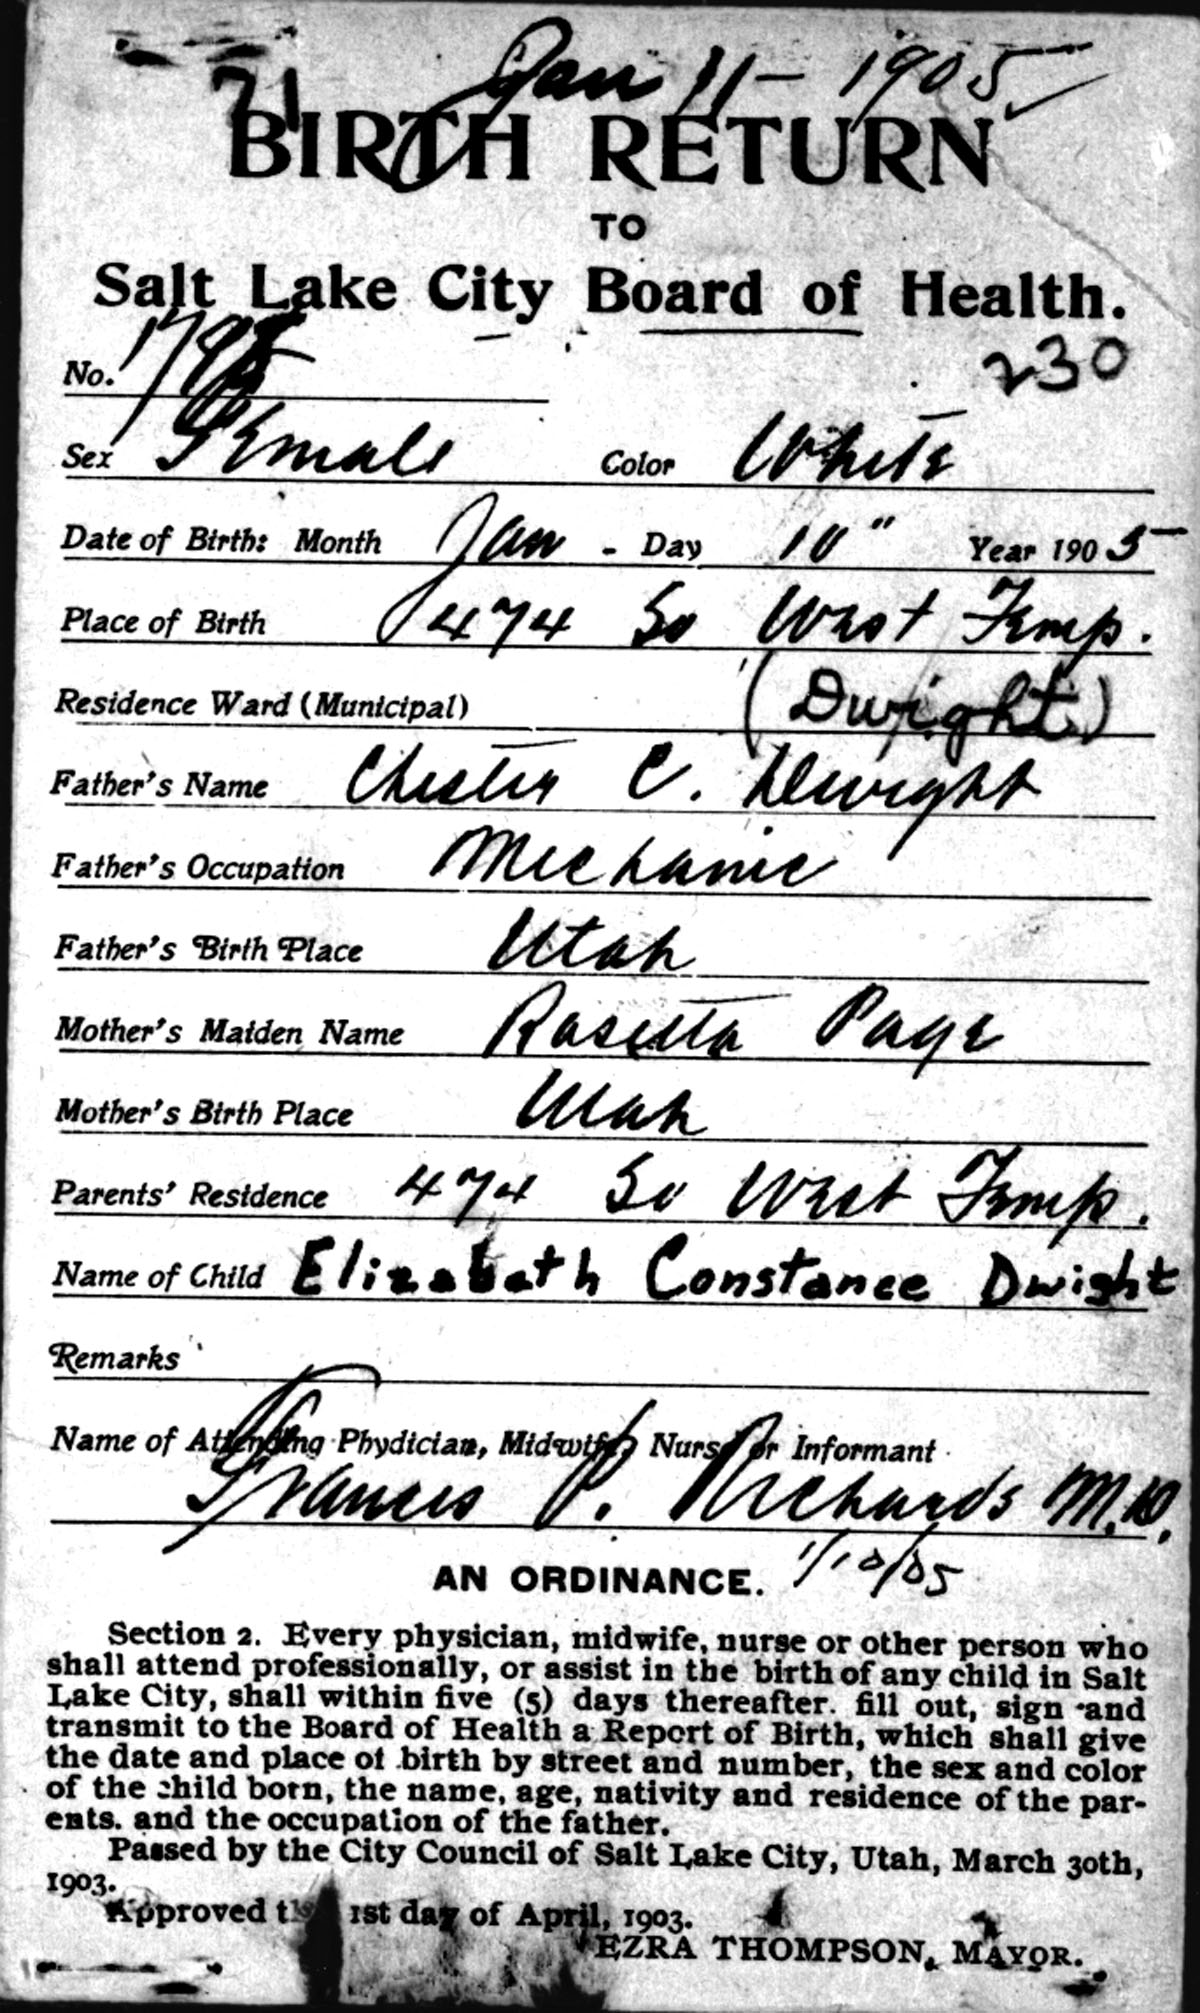 Jan 11 - 1905
71
BIRTH RETURN
TO
Salt Lake City Board of Health.
No.
230
Sex Female Color White
Date of Birth: Month Jan - Day 10" Year 1905
Place of Birth 474 So West Temp.
Residence Ward (Municipal) (Dwight)
Father's Name Chester C. Dwight
Father's Occupation Mechanic
Father's Birth Place Utah
Mother's Maiden Name Rasetta Page
Mother's Birth Place Utah
Parents' Residence 474 So West Temp.
Name of Child Elizabeth Constance Dwight
Remarks
Name of Attending Phydician, Midwife, Nurse or Informant
Francis P. Richards M.D.
AN ORDINANCE. 1/10/05
Section 2. Every physician, midwife, nurse or other person who
shall attend professionally, or assist in the birth of any child in Salt
Lake City, shall within five (5) days thereafter. fill out, sign and
transmit to the Board of Health a Report of Birth, which shall give
the date and place of birth by street and number, the sex and color
of the child born, the name, age, nativity and residence of the par-
ents. and the occupation of the father.
Passed by the City Council of Salt Lake City, Utah, March 30th,
1903.
Approved this 1st day of April, 1903.
EZRA THOMPSON, MAYOR.